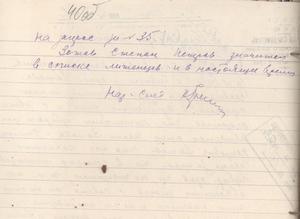 40 об
на запрос за № 35
Зотов Степан Петров значится
в списке лишенцев и в настоящее время
Нач-